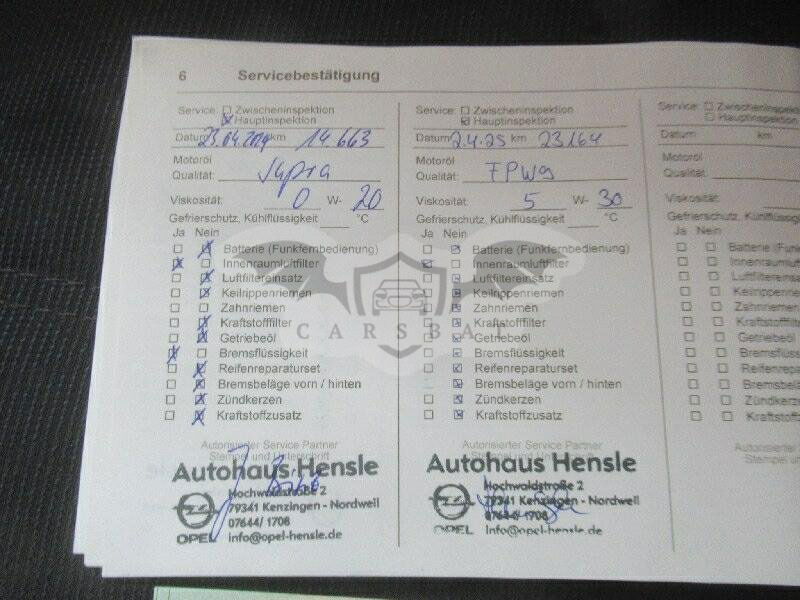 6 Servicebestätigung
Service: Zwischeninspektion
Hauptinspektion
Datum 23.04.2024 km 14.663
Motoröl
Qualität:
Viskosität: 0 W- 20
Gefrierschutz, Kühlflüssigkeit °C
Ja Nein
Batterie (Funkfernbedienung)
Innenraumluftfilter
Luftfiltereinsatz
Keilrippenriemen
Zahnriemen
Kraftstofffilter
Getriebeöl
Bremsflüssigkeit
Reifenreparaturset
Bremsbeläge vorn / hinten
Zündkerzen
Kraftstoffzusatz
Autorisierter Service Partner
Stempel und Unterschrift
Autohaus Hensle
Hochwaldstraße 2
79341 Kenzingen - Nordweil
07644/ 1708
OPEL info@opel-hensle.de
Service: Zwischeninspektion
Hauptinspektion
Datum 2.4.25 km 23164
Motoröl
Qualität:
Viskosität: 5 W- 30
Gefrierschutz, Kühlflüssigkeit °C
Ja Nein
Batterie (Funkfernbedienung)
Innenraumluftfilter
Luftfiltereinsatz
Keilrippenriemen
Zahnriemen
Kraftstofffilter
Getriebeöl
Bremsflüssigkeit
Reifenreparaturset
Bremsbeläge vorn / hinten
Zündkerzen
Kraftstoffzusatz
Autorisierter Service Partner
Stempel und Unterschrift
Autohaus Hensle
Hochwaldstraße 2
79341 Kenzingen - Nordweil
07644/ 1708
OPEL info@opel-hensle.de
Service: Zwischeninspektion
Hauptinspektion
Datum km
Motoröl
Qualität:
Viskosität:
Gefrierschutz, Kühlflüssig
Ja Nein
Batterie (Funk
Innenraumluft
Luftfiltereinsat
Keilrippenriem
Zahnriemen
Kraftstofffilter
Getriebeöl
Bremsflüssig
Reifenrepara
Bremsbeläge
Zündkerzen
Kraftstoffzus
Autorisierter
Stempel
CARSBAT